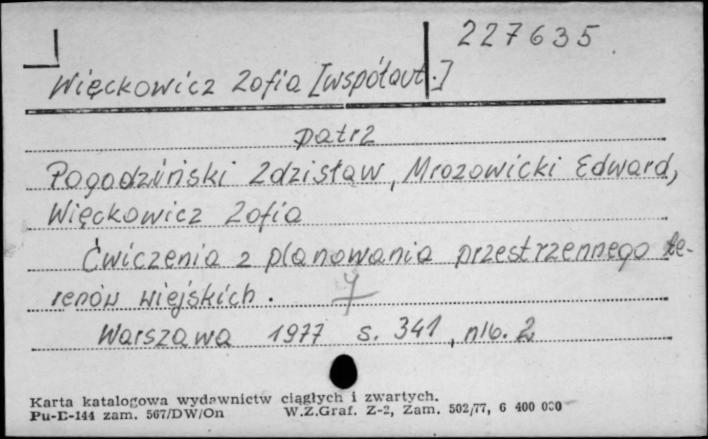 227635
Więckowicz Zofia [współaut.]
patrz
Pogodziński Zdzisław, Mrozowicki Edward,
Więckowicz Zofia
Ćwiczenia z planowania przestrzennego te-
renów wiejskich.
Warszawa 1977 s. 341, nlb. 2
Karta katalogowa wydawnictw ciągłych i zwartych.
Pu-E-144 zam. 567/DW/On W.Z.Graf. Z-2, Zam. 502/77, 6 400 000